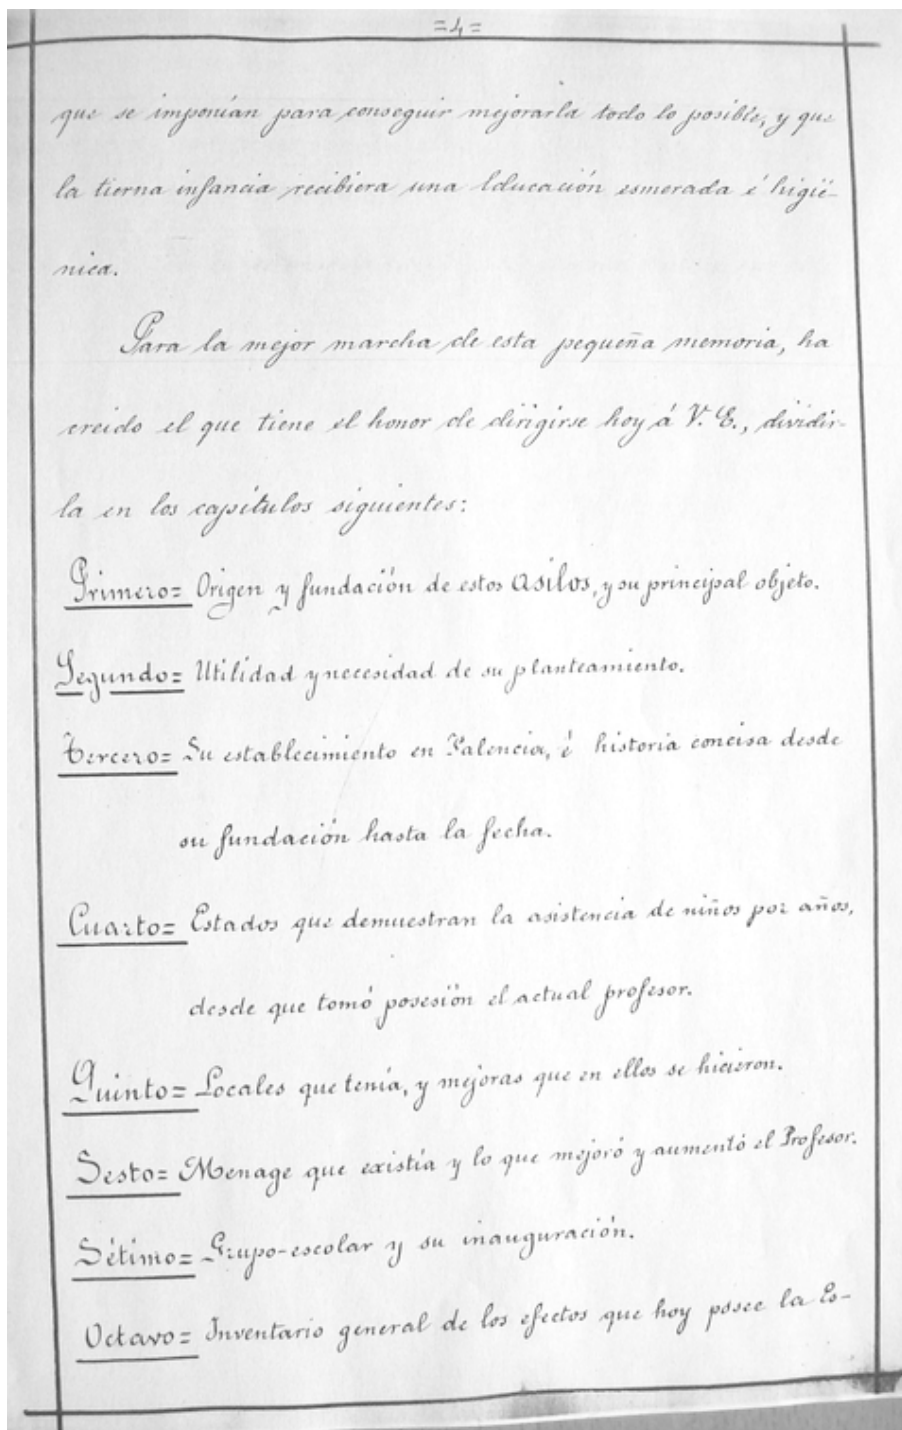 =4=
que se imponían para conseguir mejorarla todo lo posible, y que
la tierna infancia recibiera una Educación esmerada é higié-
nica.
Para la mejor marcha de esta pequeña memoria, ha
creido el que tiene el honor de dirigirse hoy á V. E., dividir-
la en los capítulos siguientes:
Primero= Origen y fundación de estos asilos, y su principal objeto.
Segundo= Utilidad y necesidad de su planteamiento.
Tercero= Su establecimiento en Palencia, é historia concisa desde
su fundación hasta la fecha.
Cuarto= Estados que demuestran la asistencia de niños por años,
desde que tomó posesión el actual profesor.
Quinto= Locales que tenía, y mejoras que en ellos se hicieron.
Sesto= Menage que existía y lo que mejoró y aumentó el Profesor.
Sétimo= Grupo-escolar y su inauguración.
Octavo= Inventario general de los efectos que hoy posee la Es-